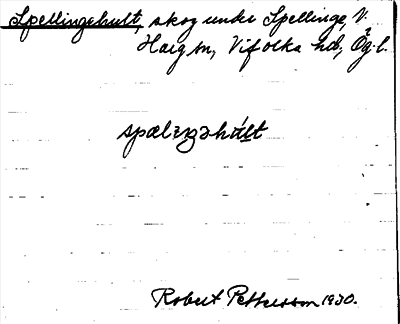 Spellingehult, skog under Spellinge, V.
Harg sn, Vifolka hd, Ög. l.
spælɪŋəhúlt
Robert Pettersson 1930.